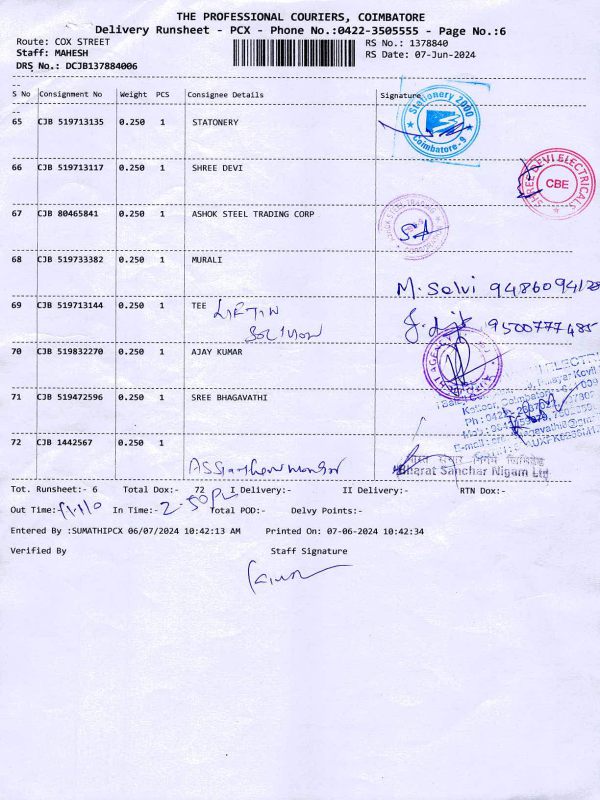 THE PROFESSIONAL COURIERS, COIMBATORE
Delivery Runsheet - PCX - Phone No.:0422-3505555 - Page No.:6
Route: COX STREET
RS No.: 1378840
Staff: MAHESH
RS Date: 07-Jun-2024
DRS No.: DCJB137884006
S No Consignment No Weight PCS Consignee Details Signature
65 CJB 519713135 0.250 1 STATONERY
Stationery 2000
Coimbatore - 9
66 CJB 519713117 0.250 1 SHREE DEVI
SHREE DEVI ELECTRICALS
CBE
67 CJB 80465841 0.250 1 ASHOK STEEL TRADING CORP
SA
68 CJB 519733382 0.250 1 MURALI
M. Selvi 9486094128
69 CJB 519713144 0.250 1 TEE
9500777485
70 CJB 519832270 0.250 1 AJAY KUMAR
AGENCY
71 CJB 519472596 0.250 1 SREE BHAGAVATHI
72 CJB 1442567 0.250 1
भारत संचार निगम लिमिटेड
Bharat Sanchar Nigam Ltd
Tot. Runsheet:- 6 Total Dox:- 72 I Delivery:- II Delivery:- RTN Dox:-
Out Time: In Time:- 2.50 Total POD:- Delvy Points:-
Entered By :SUMATHIPCX 06/07/2024 10:42:13 AM Printed On: 07-06-2024 10:42:34
Verified By Staff Signature